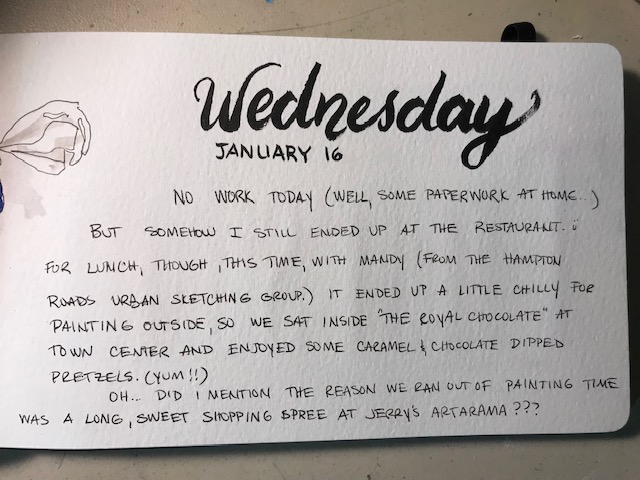 Wednesday
JANUARY 16
NO WORK TODAY (WELL, SOME PAPERWORK AT HOME..)
BUT SOMEHOW I STILL ENDED UP AT THE RESTAURANT. :)
FOR LUNCH, THOUGH, THIS TIME, WITH MANDY (FROM THE HAMPTON
ROADS URBAN SKETCHING GROUP.) IT ENDED UP A LITTLE CHILLY FOR
PAINTING OUTSIDE, SO WE SAT INSIDE "THE ROYAL CHOCOLATE" AT
TOWN CENTER AND ENJOYED SOME CARAMEL & CHOCOLATE DIPPED
PRETZELS. (YUM!!)
OH... DID I MENTION THE REASON WE RAN OUT OF PAINTING TIME
WAS A LONG, SWEET SHOPPING SPREE AT JERRY'S ARTARAMA???